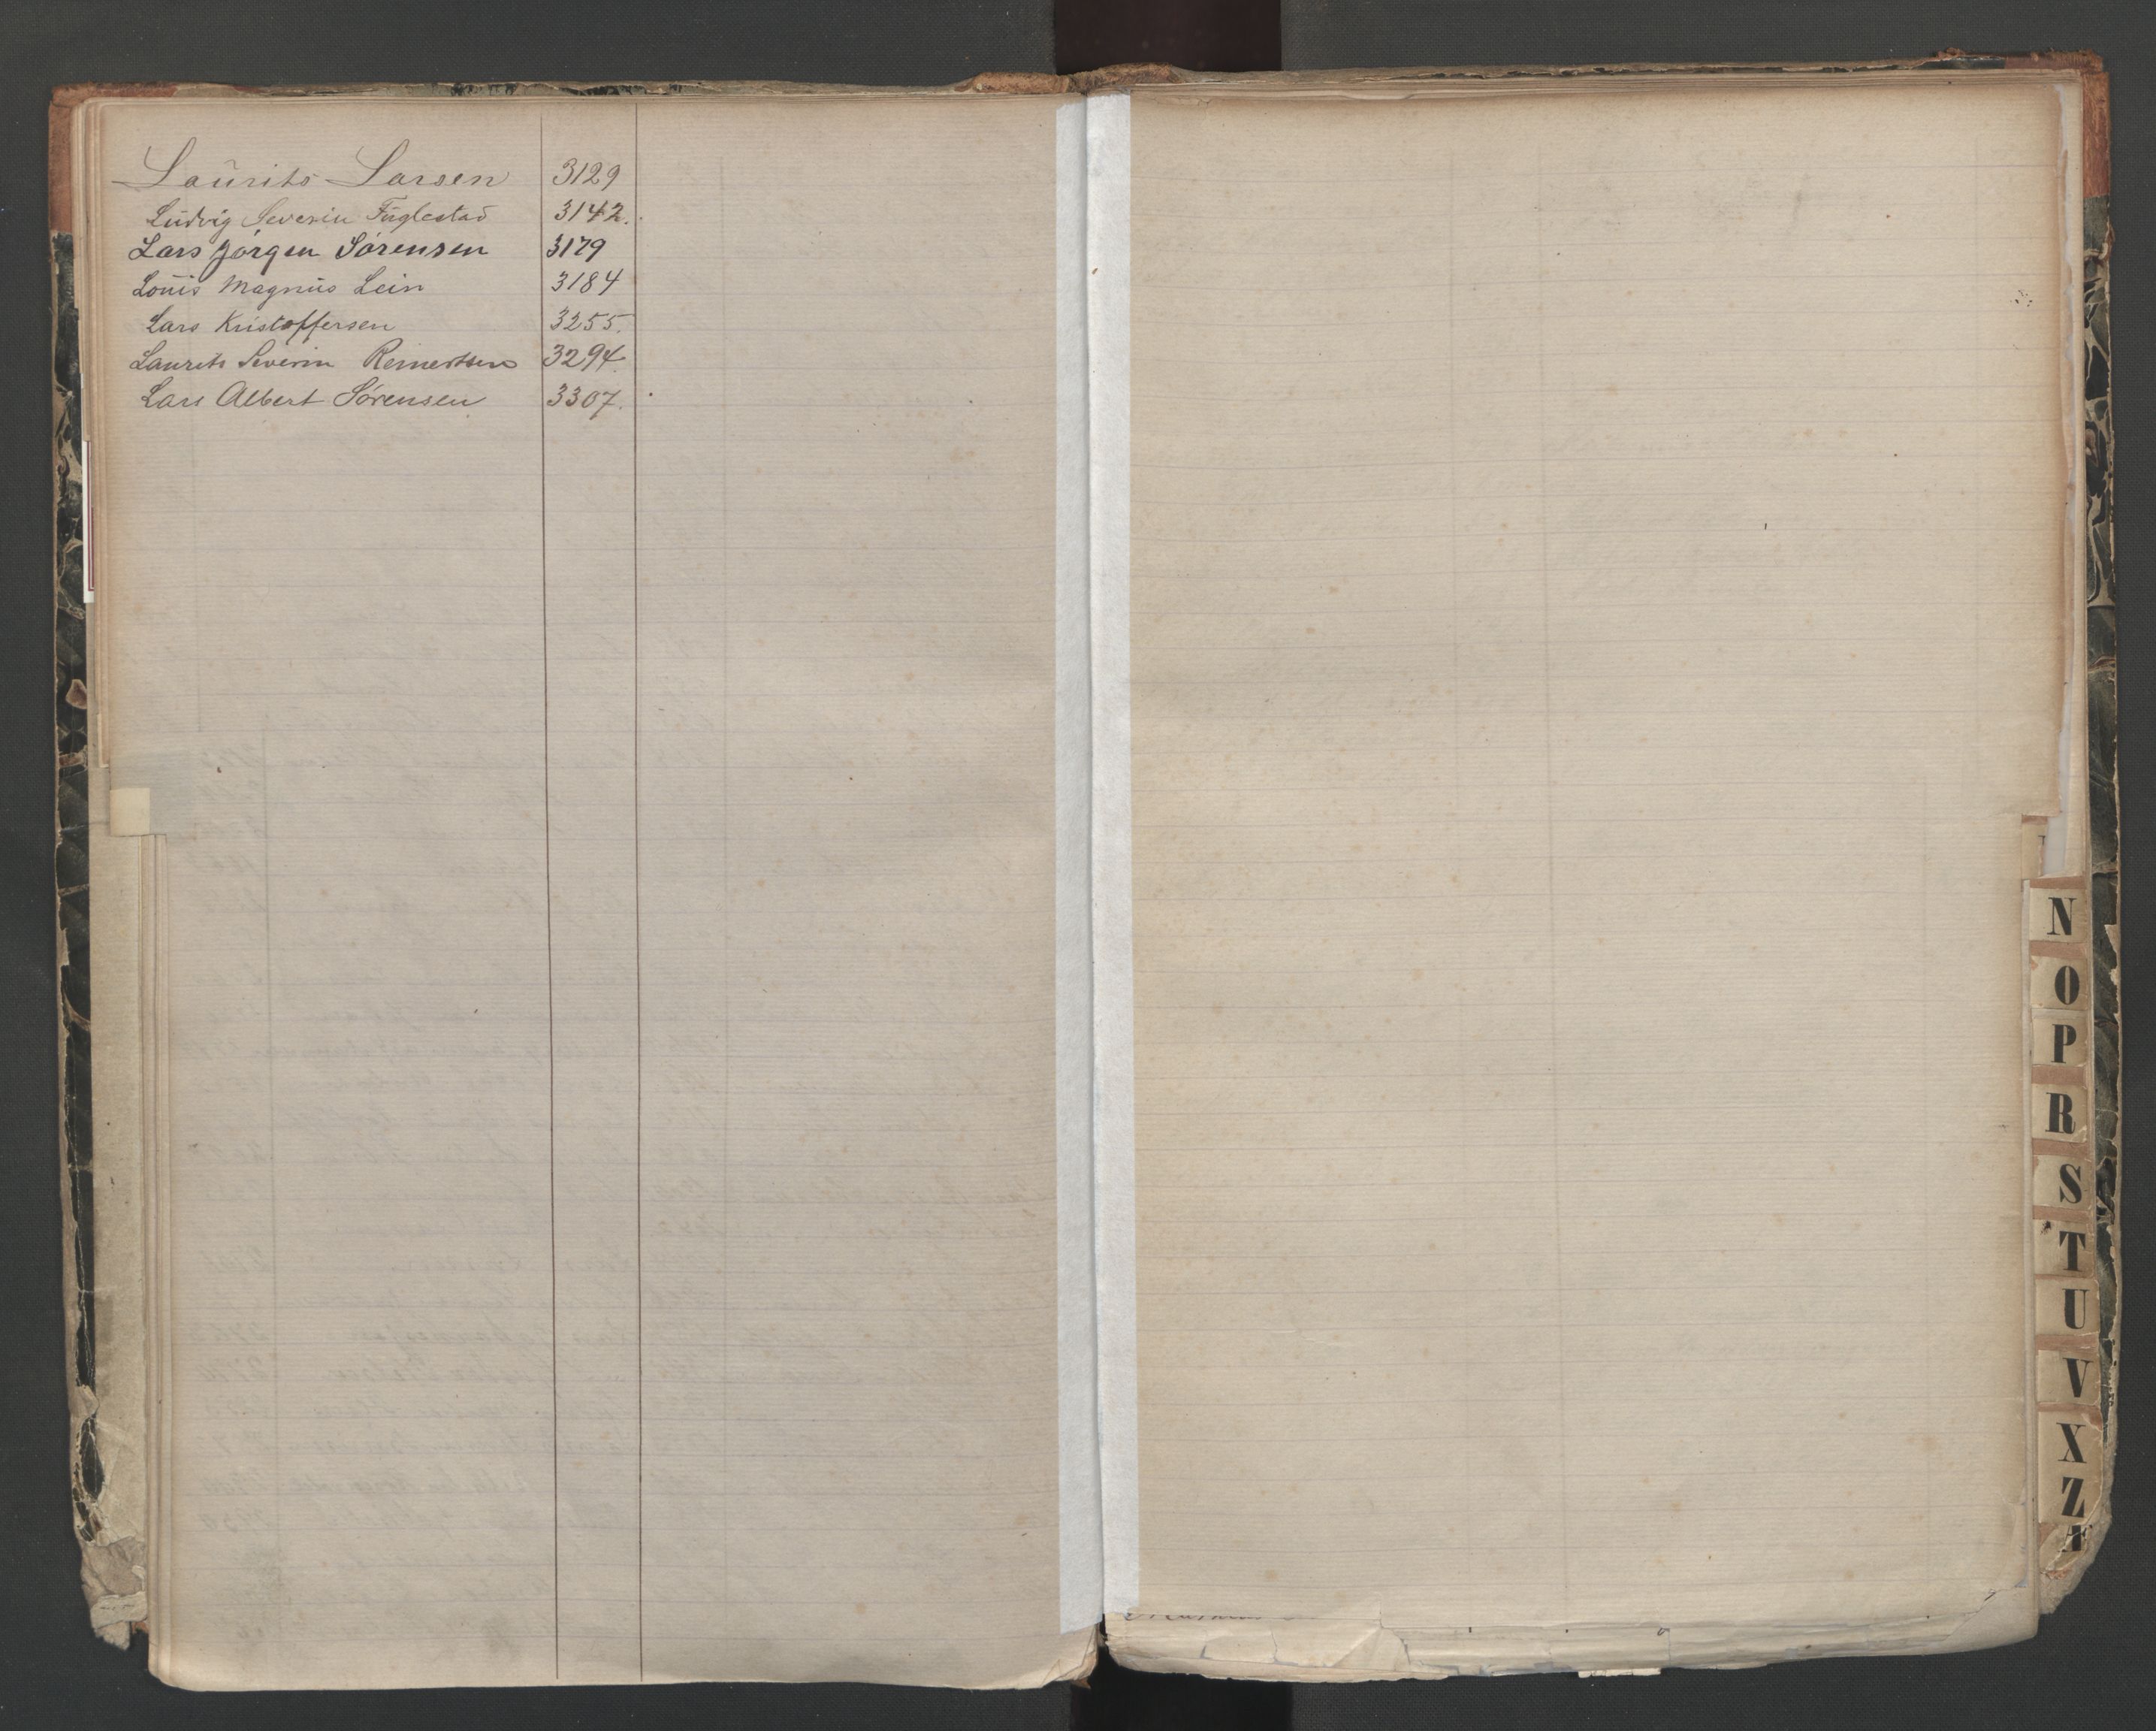 Laŭrits Larsen 3129
Lŭdvig Severin Fŭglestad 3142.
Lars Jörgen Sörensen 3179
Loŭis Magnŭs Lein 3184
Lars Kristoffersen 3255.
Laurits Severin Reinertsen 3294.
Lars Albert Sørensen 3307.
N
O
P
R
S
T
U
V
X
Z